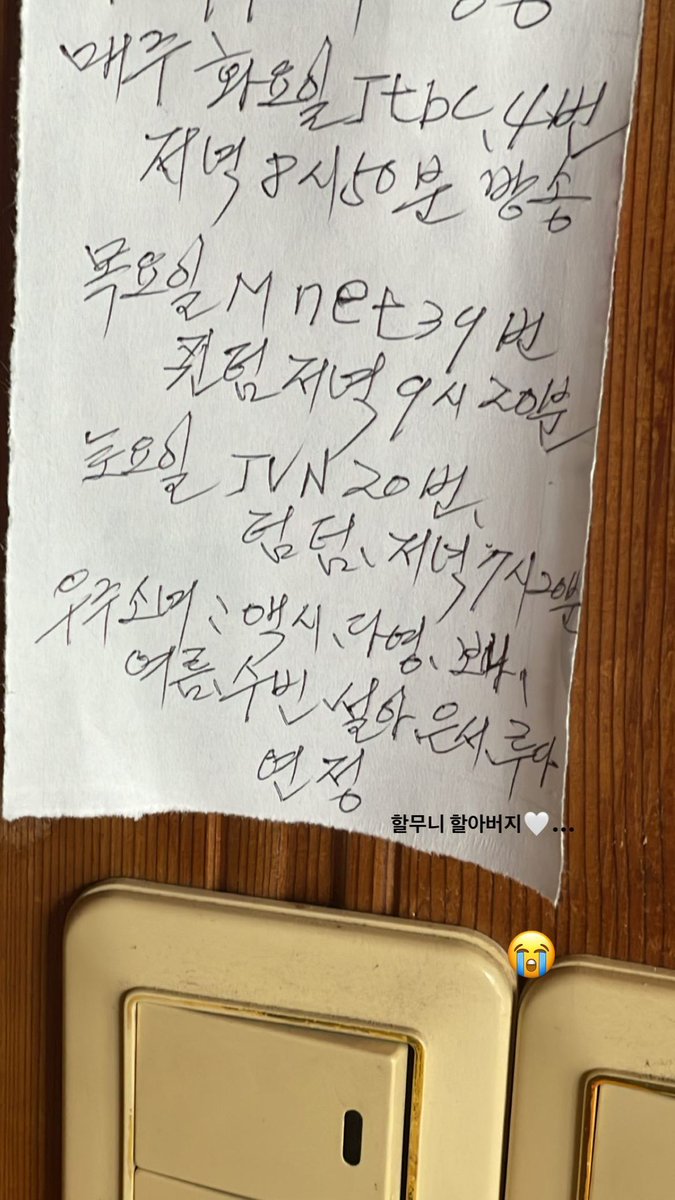 매주 화요일 Jtbc, 4번
저녁 8시50분 방송
목요일 M net 39번
퀸덤 저녁 9시 20분
토요일 TVN 20번,
저녁 7시20분
우주소녀; 엑시, 다영, 보나,
여름, 수빈, 설아, 은서, 루다
연정
할무니 할아버지🤍...
😭